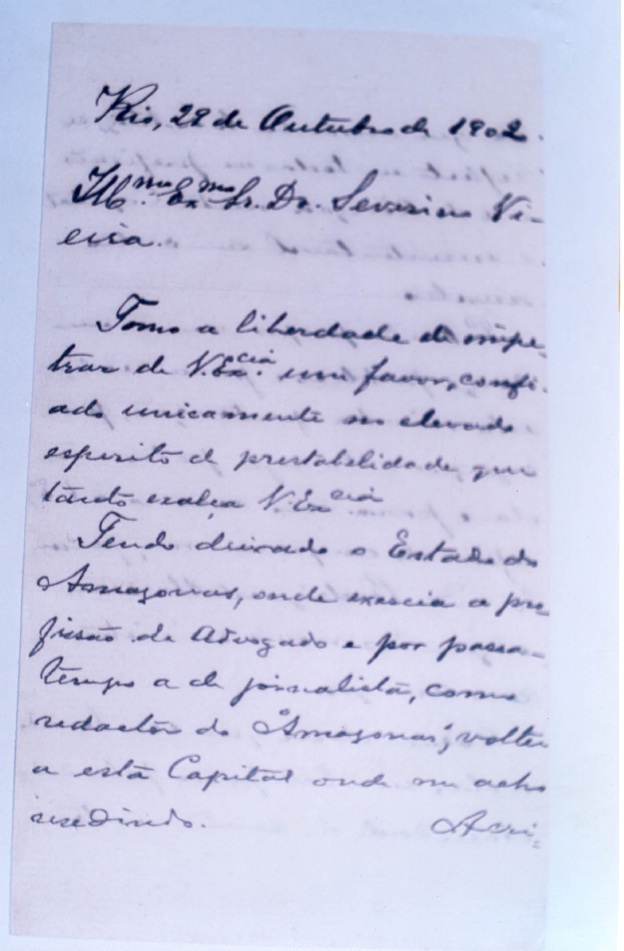 Rio, 28 de Outubro de 1902.
Ill.mo Ex.mo Sr. Dr. Severino Vi-
eira.
Tomo a liberdade de impe-
trar de V. Ex.cia um favor, confi-
ado unicamente no elevado
espirito de prestabilidade, que
tanto exalça V. Ex.cia
Tendo deixado o Estado do
Amazonas, onde exercia a pro-
fissão de Advogado e por passa-
tempo a de jornalista, como
redactor do "Amazonas", voltei
a esta Capital onde me acho
residindo. Acri-